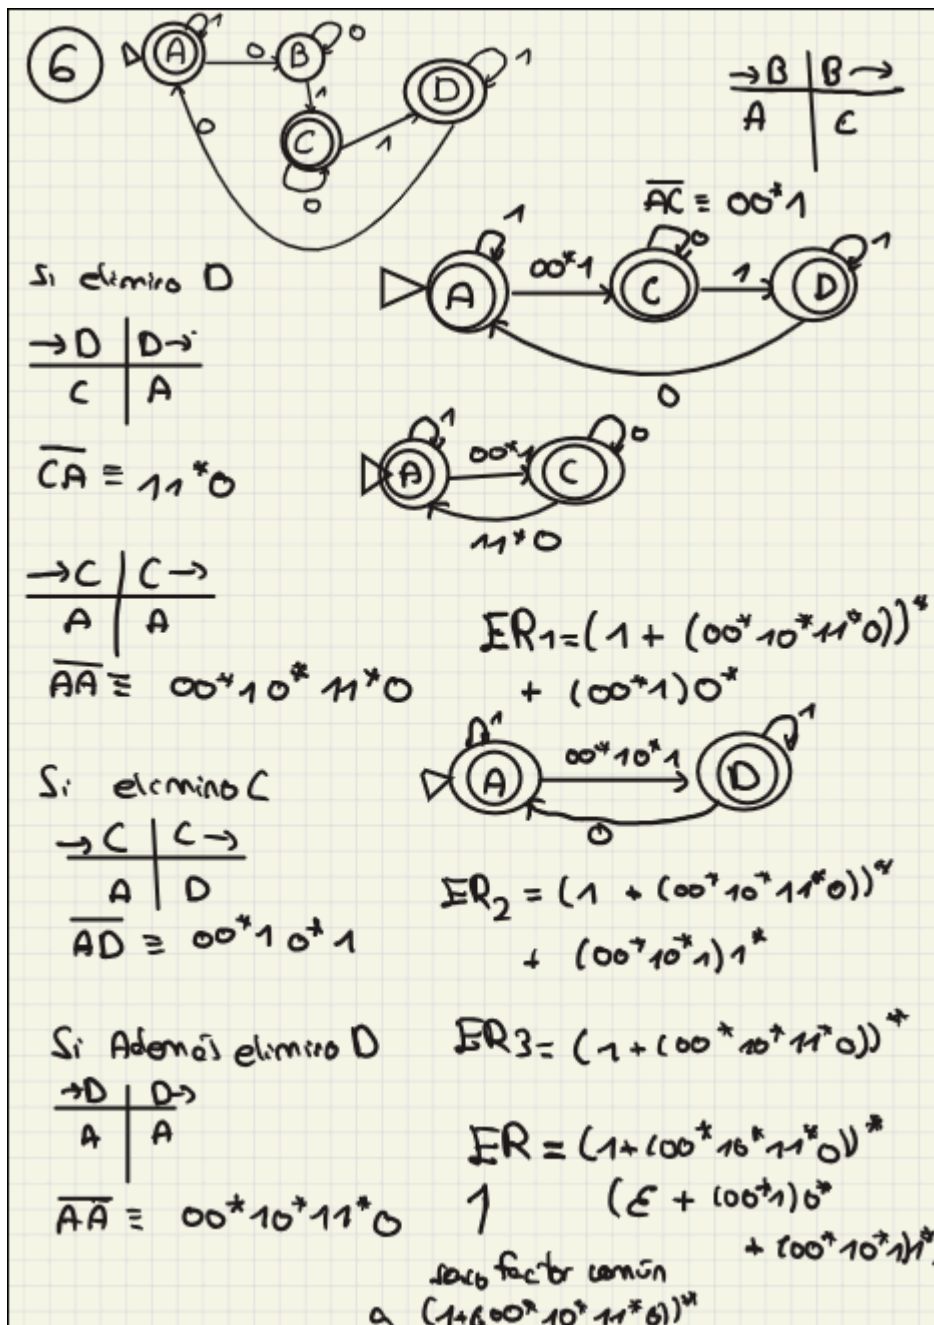 6
A 1 0 B 0 1 C 0 1 D 1 0
→B | B→
A | C
AC ≡ 00*1
A 1 00*1 C 0 1 D 1 0
Si elimino D
→D | D→
C | A
CA ≡ 11*0
A 1 00*1 C 0 11*0
→C | C→
A | A
AA ≡ 00*10*11*0
ER1=(1 + (00*10*11*0))*
+ (00*1)0*
A 1 00*10*1 D 1 0
Si elemino C
→C | C→
A | D
AD ≡ 00*10*1
ER2 = (1 + (00*10*11*0))*
+ (00*10*1)1*
Si Además elimino D
→D | D→
A | A
AA ≡ 00*10*11*0
ER3= (1+(00*10*11*0))*
ER = (1+(00*10*11*0))*
(ε + (00*1)0*
+ (00*10*1)1*
saco factor común
a (1+(00*10*11*0))*